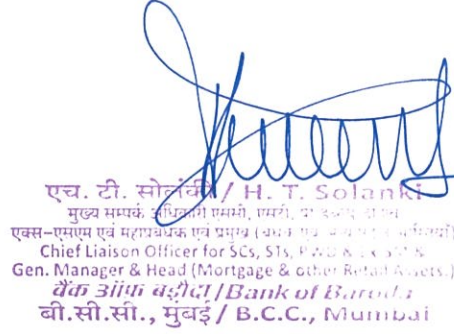 एच. टी. सोलंकी / H. T. Solanki
मुख्य सम्पर्क अधिकारी एससी, एसटी,
एक्स-एसएम एवं महाप्रबंधक एवं प्रमुख
Chief Liaison Officer for SCs, STs, PWD & Ex SM &
Gen. Manager & Head (Mortgage & other Retail Assets.)
बैंक ऑफ़ बड़ौदा / Bank of Baroda
बी.सी.सी., मुंबई / B.C.C., Mumbai